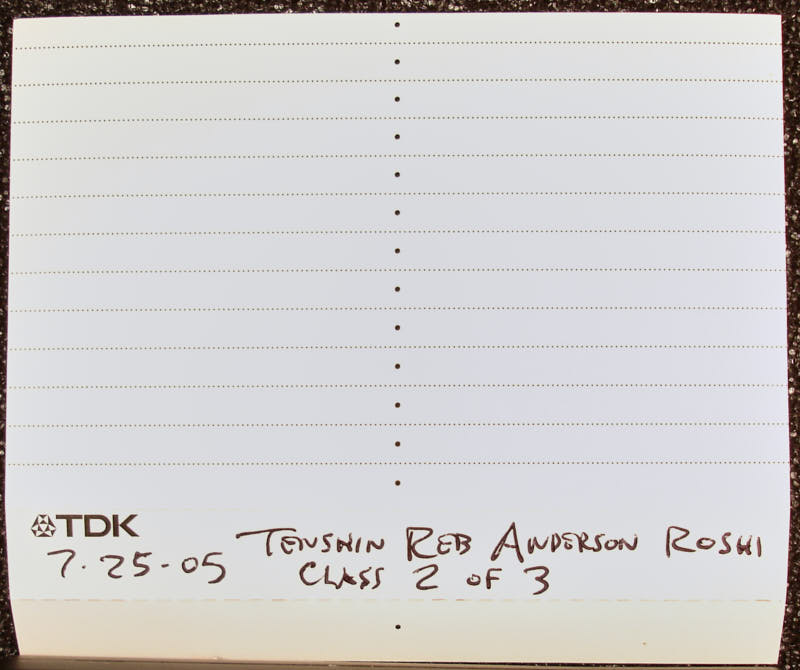 TDK
TENSHIN REB ANDERSON ROSHI
7·25-05 CLASS 2 OF 3